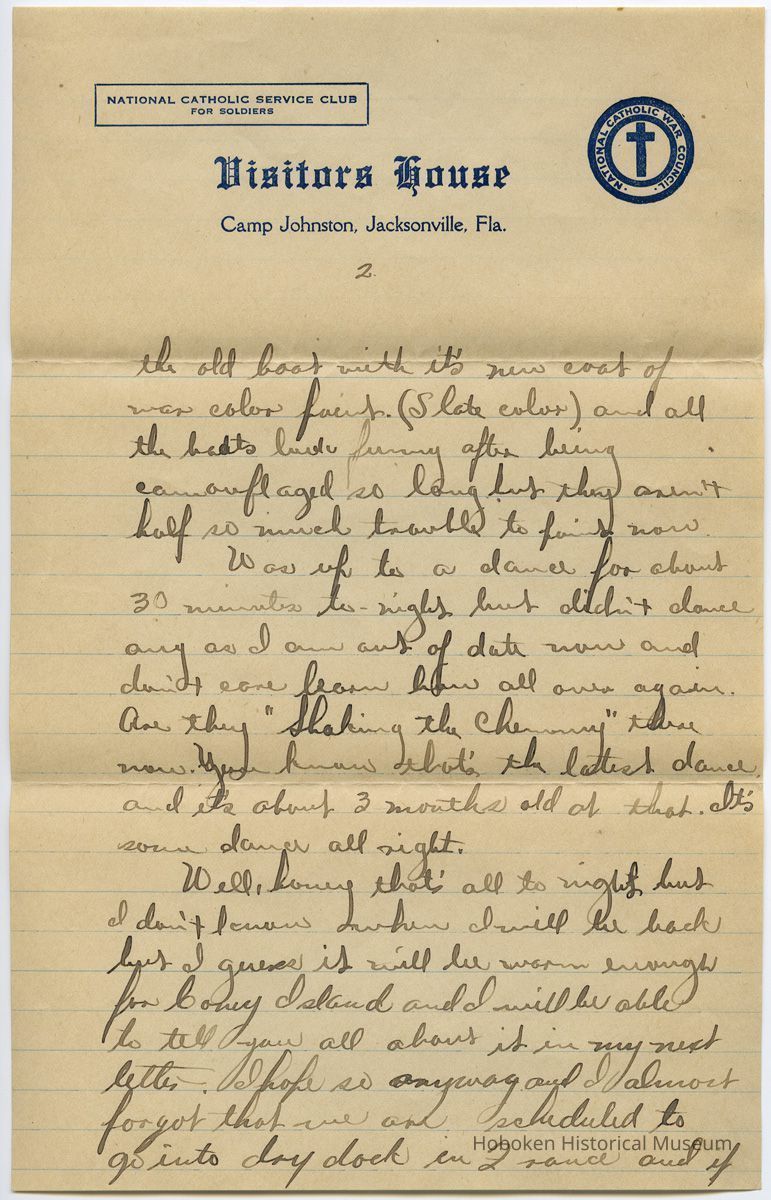 NATIONAL CATHOLIC SERVICE CLUB
FOR SOLDIERS
NATIONAL CATHOLIC WAR COUNCIL
Visitors House
Camp Johnston, Jacksonville, Fla.
2
the old boat with it's new coat of
war color paint. (Slate color) and all
the boats look funny after being
camouflaged so long but they aren't
half so much trouble to paint now.
Was up to a dance for about
30 minutes to-night but didn't dance
any as I am out of date now and
don't care learn how all over again.
Are they "Shaking the Chemmy" there
now. You know that's the latest dance
and it's about 3 months old at that. It's
some dance all right.
Well, honey that's all to night but
I don't know when I will be back
but I guess it will be warm enough
for Coney Island and I will be able
to tell you all about it in my next
letter. I hope so anyway and I almost
forgot that we are scheduled to
go into dry dock in France and if
Hoboken Historical Museum